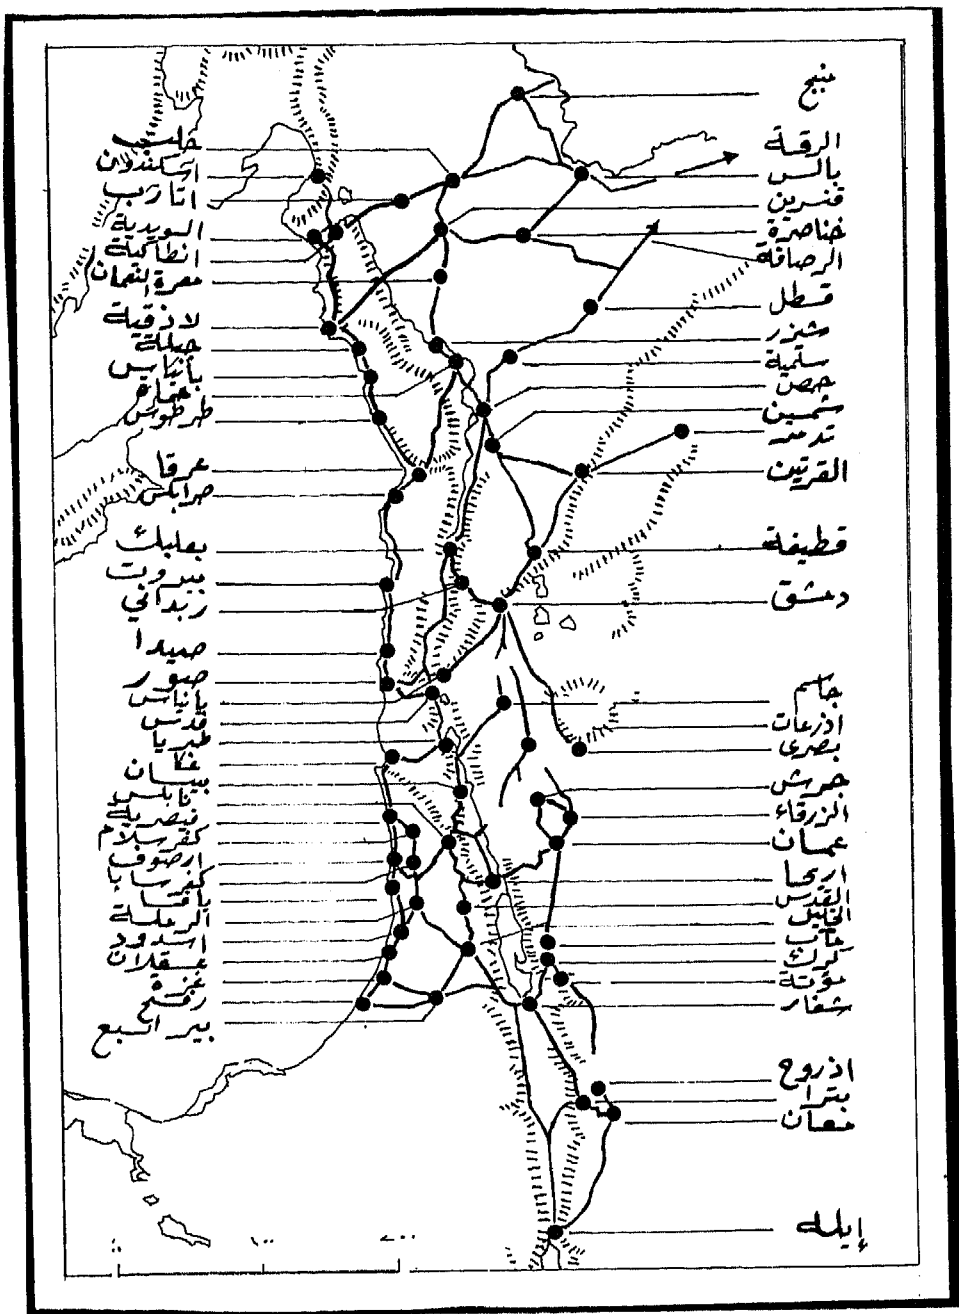 منبج
الرقة
بالس
قنسرين
خناصرة
الرصافة
قسطل
شيزر
سلمية
حمص
شمسين
تدمر
القرتين
قطيفة
دمشق
جاسم
اذرعات
بصرى
جرش
الزرقاء
عمان
اريحا
القدس
الخليل
مآب
كرك
مؤتة
شغار
اذروح
بترا
معان
إيله
حلب
اسكندرون
اتارب
السويدية
انطاكية
معرة النعمان
لاذقية
جبلة
بانياس
حماه
طرطوس
عرقا
طرابلس
بعلبك
بيروت
زبداني
صيدا
صور
بانياس
قدس
طبريا
عكا
بيسان
نابلس
قيصرية
كفر سلام
ارصوف
كفر سابا
يافا
الرملة
اسدود
عسقلان
غزة
رفح
بير السبع
٥٠
١٠٠
٢٠٠